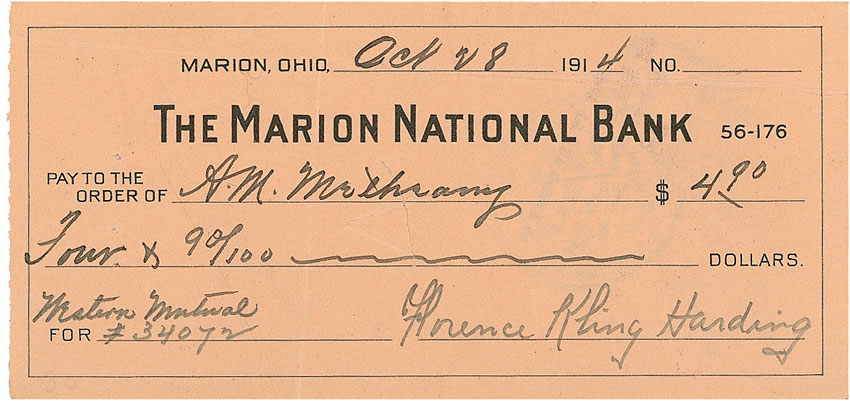 MARION, OHIO, Oct 28 1914 NO.
THE MARION NATIONAL BANK 56-176
PAY TO THE
ORDER OF A.M. $ 4.90
Four & 90/100 DOLLARS.
Western Mutual
FOR # 34072 Florence Kling Harding